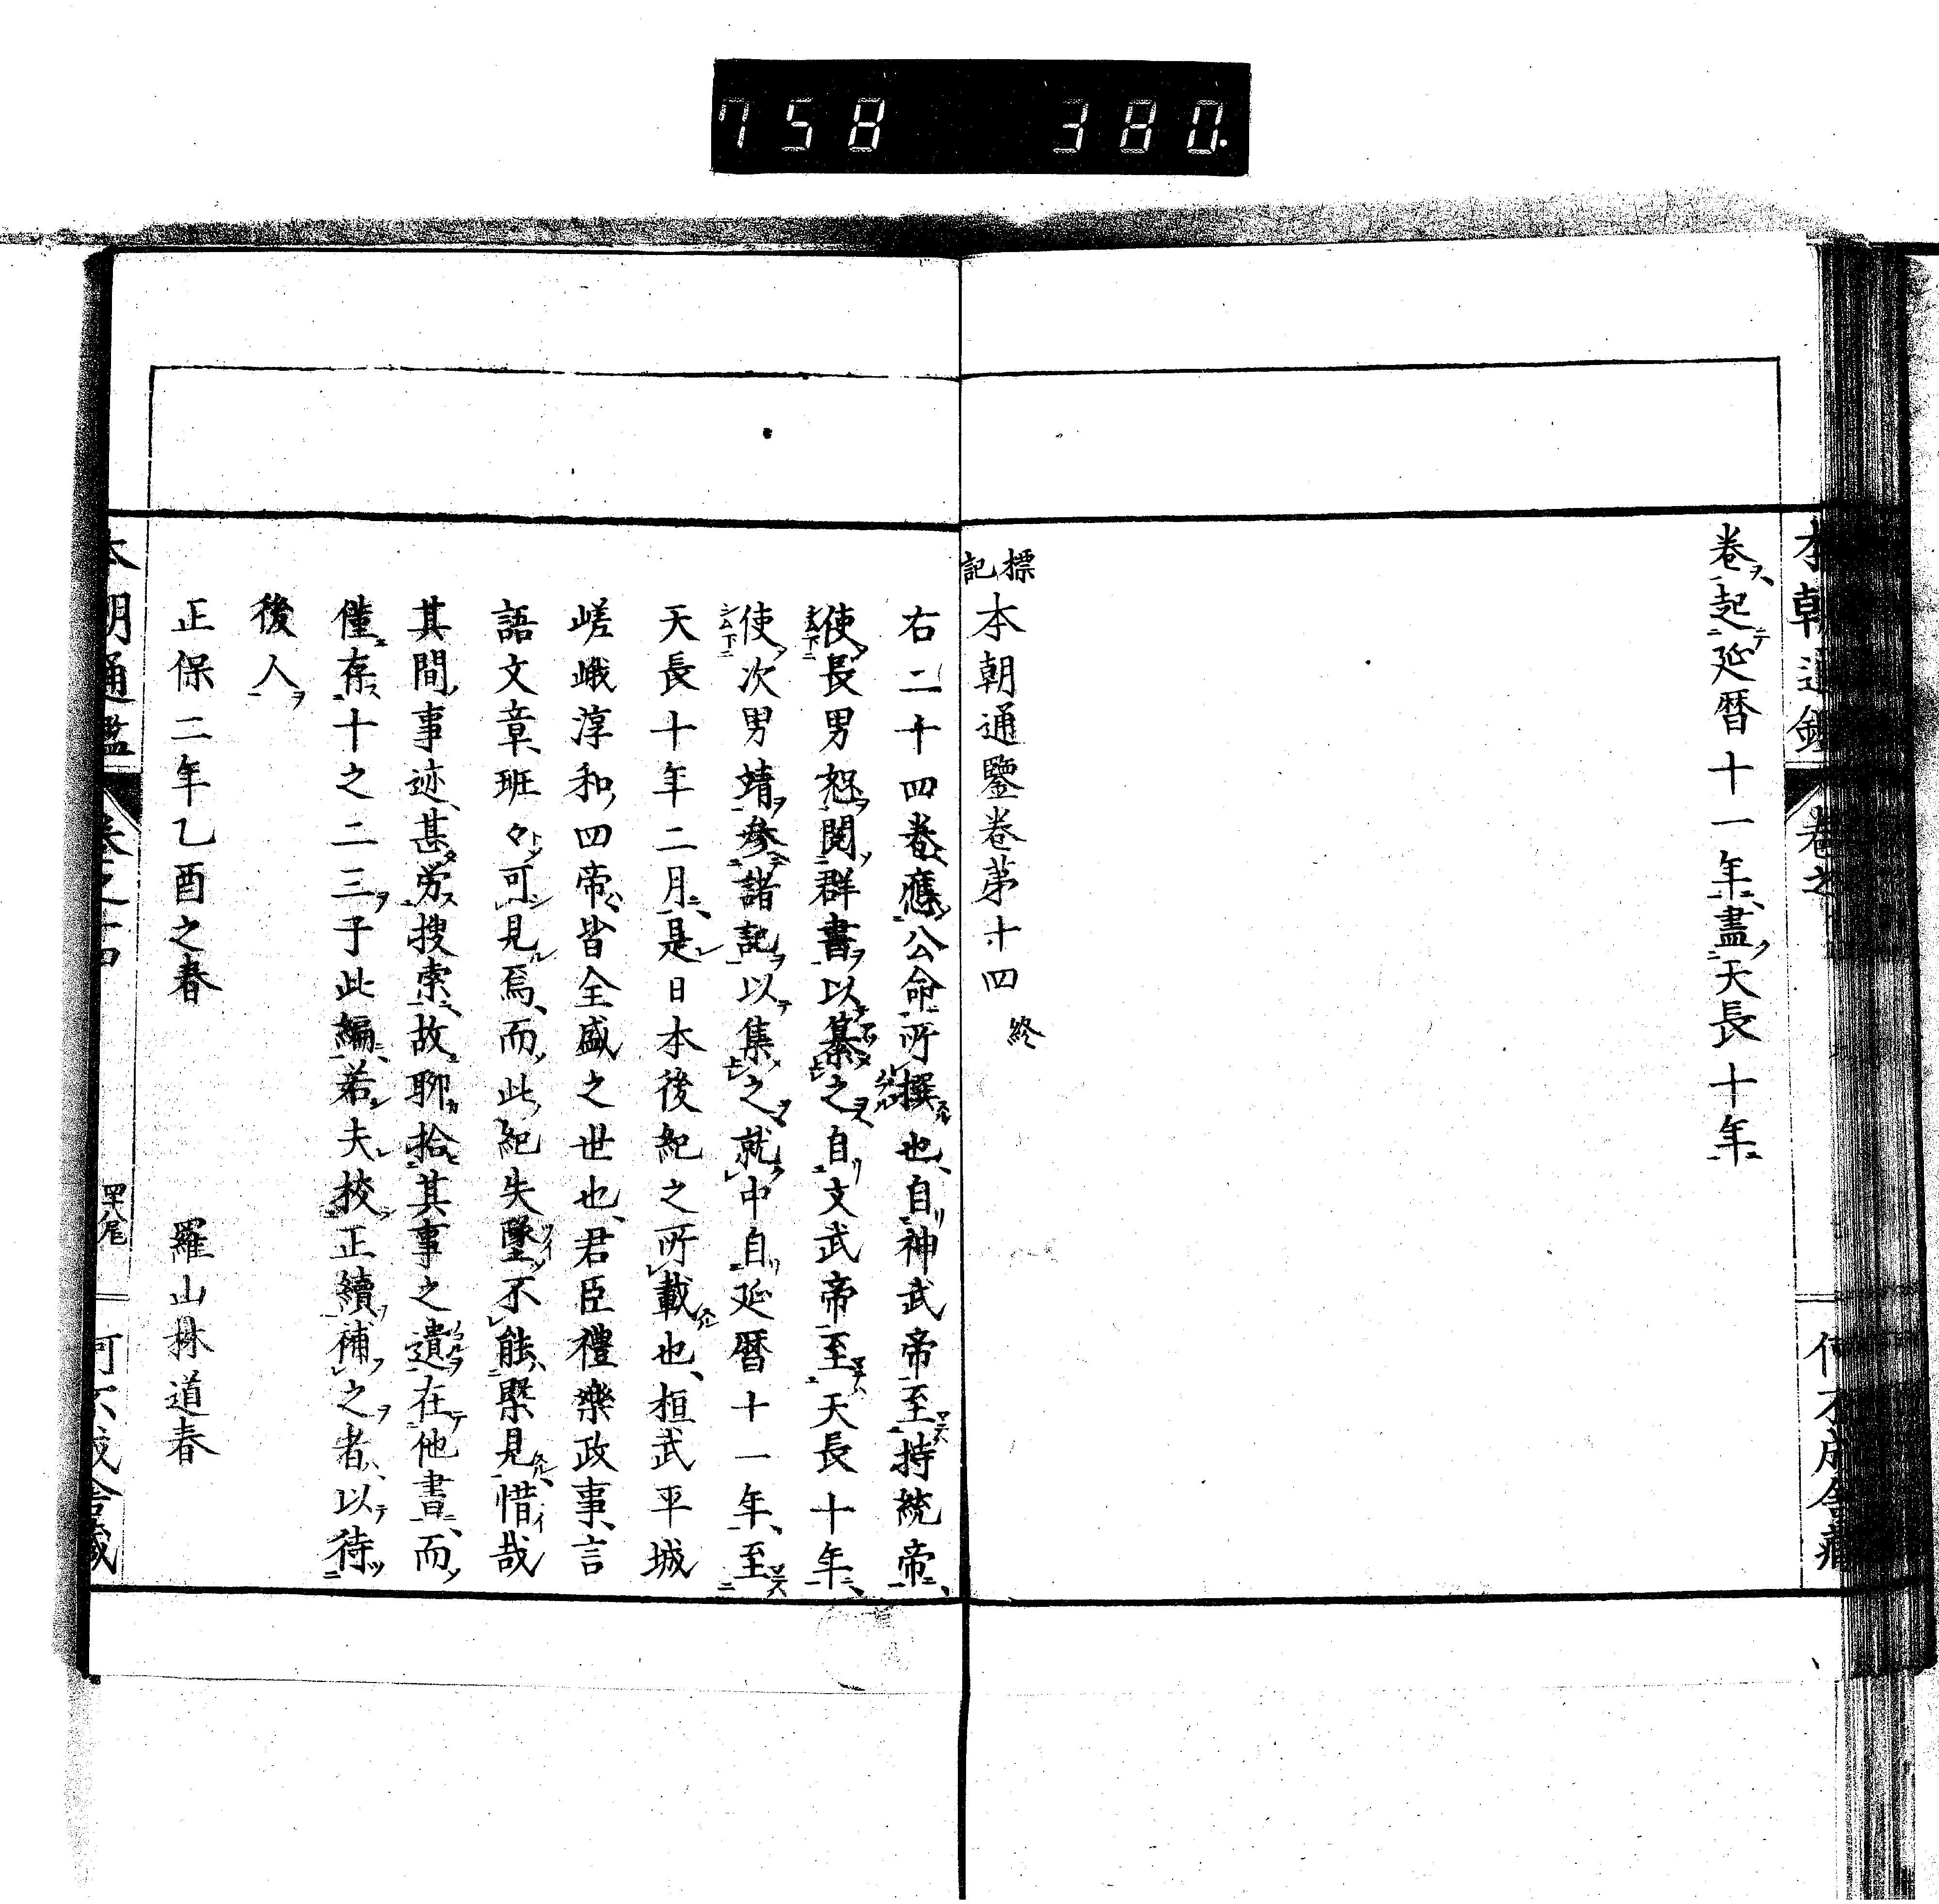 758 380.
本朝通鑑
卷之
卷起延暦十一年盡天長十年
標記
本朝通鑒卷第十四 終
右二十四卷應公命所撰也自神武帝至持統帝
使長男恕閲群書以纂之自文武帝至天長十年
使次男靖參諸記以集之就中自延暦十一年至
天長十年二月是日本後紀之所載也桓武平城
嵯峨淳和四帝皆全盛之世也君臣禮樂政事言
語文章班々可見焉而此紀失墜不能槩見惜哉
其間事迹甚労搜索故聊拾其事之遺在他書而
僅存十之二三于此編若夫挍正續補之者以待
後人
正保二年乙酉之春 羅山林道春
本朝通鑑
卷之十四